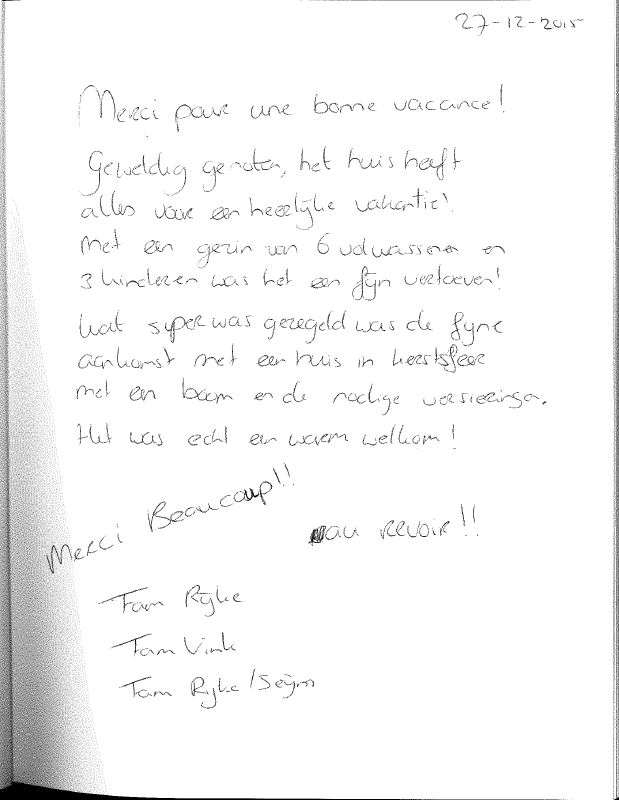 27-12-2015
Merci pour une bonne vacance!
Geweldig genoten, het huis heeft
alles voor een heerlijke vakantie!
Met een gezin van 6 volwassenen en
3 kinderen was het een fijn vertoeven!
Wat super was geregeld was de fijne
aankomst met een huis in kerstsfeer
met een boom en de nodige versieringen.
Het was echt een warm welkom!
Merci Beaucoup!!
au revoir!!
Fam Rijke
Fam Vink
Fam Rijke/